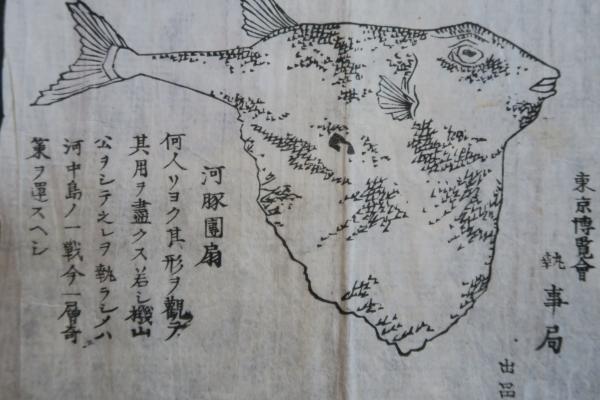 東京博覧會
執事局
出品
河豚團扇
何人リヨク其形ヲ觀テ
其用ヲ盡クス若シ機山
公ヲシテ之レヲ執ラシメハ
河中島ノ一戦今一層奇
策ヲ運スヘシ